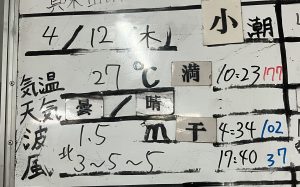 小潮
4/12 木
気温 27 ℃ 満 10:23 177
天気 曇/晴
波 1.5 m 干 4:34 102
風 北3～5～5 17:40 37